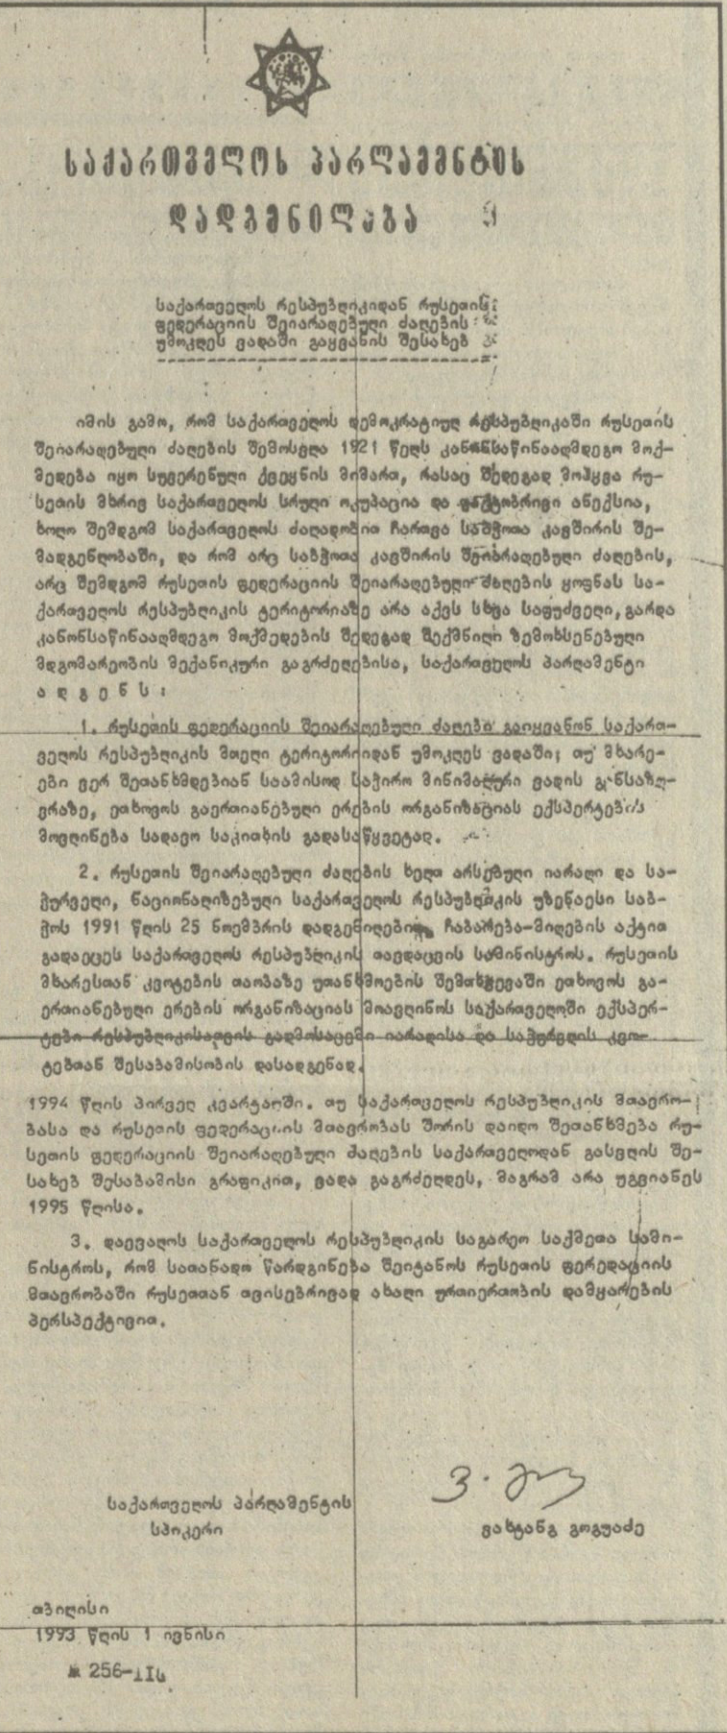 საქართველოს პარლამენტის
დადგენილება
საქართველოს რესპუბლიკიდან რუსეთის
ფედერაციის შეიარაღებული ძალების
უმოკლეს ვადაში გაყვანის შესახებ
იმის გამო, რომ საქართველოს დემოკრატიულ რესპუბლიკაში რუსეთის
შეიარაღებული ძალების შემოსვლა 1921 წელს კანონსაწინააღმდეგო მოქ-
მედება იყო სუვერენული ქვეყნის მიმართ, რასაც შედეგად მოჰყვა რუ-
სეთის მხრივ საქართველოს სრული ოკუპაცია და ფაქტობრივი ანექსია,
ხოლო შემდგომ საქართველოს ძალადობით ჩართვა საბჭოთა კავშირის შე-
მადგენლობაში, და რომ არც საბჭოთა კავშირის შეიარაღებული ძალების,
არც შემდგომ რუსეთის ფედერაციის შეიარაღებული ძალების ყოფნას სა-
ქართველოს რესპუბლიკის ტერიტორიაზე არა აქვს სხვა საფუძველი, გარდა
კანონსაწინააღმდეგო მოქმედების შედეგად შექმნილი ზემოხსენებული
მდგომარეობის მექანიკური გაგრძელებისა, საქართველოს პარლამენტი
ა დ გ ე ნ ს :
1. რუსეთის ფედერაციის შეიარაღებული ძალები გაიყვანონ საქართ-
ველოს რესპუბლიკის მთელი ტერიტორიიდან უმოკლეს ვადაში; თუ მხარე-
ები ვერ შეთანხმდებიან საამისოდ საჭირო მინიმალური ვადის განსაზღ-
ვრაზე, ეთხოვოს გაერთიანებული ერების ორგანიზაციას ექსპერტების
მოვლინება სადავო საკითხის გადასაწყვეტად.
2. რუსეთის შეიარაღებული ძალების ხელთ არსებული იარაღი და სა-
ჭურველი, ნაციონალიზებული საქართველოს რესპუბლიკის უზენაესი საბ-
ჭოს 1991 წლის 25 ნოემბრის დადგენილებით, ჩაბარება-მიღების აქტით
გადაეცეს საქართველოს რესპუბლიკის თავდაცვის სამინისტროს. რუსეთის
მხარესთან კვოტების თაობაზე უთანხმოების შემთხვევაში ეთხოვოს გა-
ერთიანებული ერების ორგანიზაციას მოავლინოს საქართველოში ექსპერ-
ტები რესპუბლიკისათვის გადმოსაცემი იარაღისა და საჭურვლის კვო-
ტებთან შესაბამისობის დასადგენად.
1994 წლის პირველ კვარტალში. თუ საქართველოს რესპუბლიკის მთავრო-
ბასა და რუსეთის ფედერაციის მთავრობას შორის დაიდო შეთანხმება რუ-
სეთის ფედერაციის შეიარაღებული ძალების საქართველოდან გასვლის შე-
სახებ შესაბამისი გრაფიკით, ვადა გაგრძელდეს, მაგრამ არა უგვიანეს
1995 წლისა.
3. დაევალოს საქართველოს რესპუბლიკის საგარეო საქმეთა სამი-
ნისტროს, რომ სათანადო წარდგინება შეიტანოს რუსეთის ფერედაციის
მთავრობაში რუსეთთან თვისებრივად ახალი ურთიერთობის დამყარების
პერსპექტივით.
საქართველოს პარლამენტის
სპიკერი
ვახტანგ გოგუაძე
თბილისი
1993 წლის 1 ივნისი
№ 256-IIს